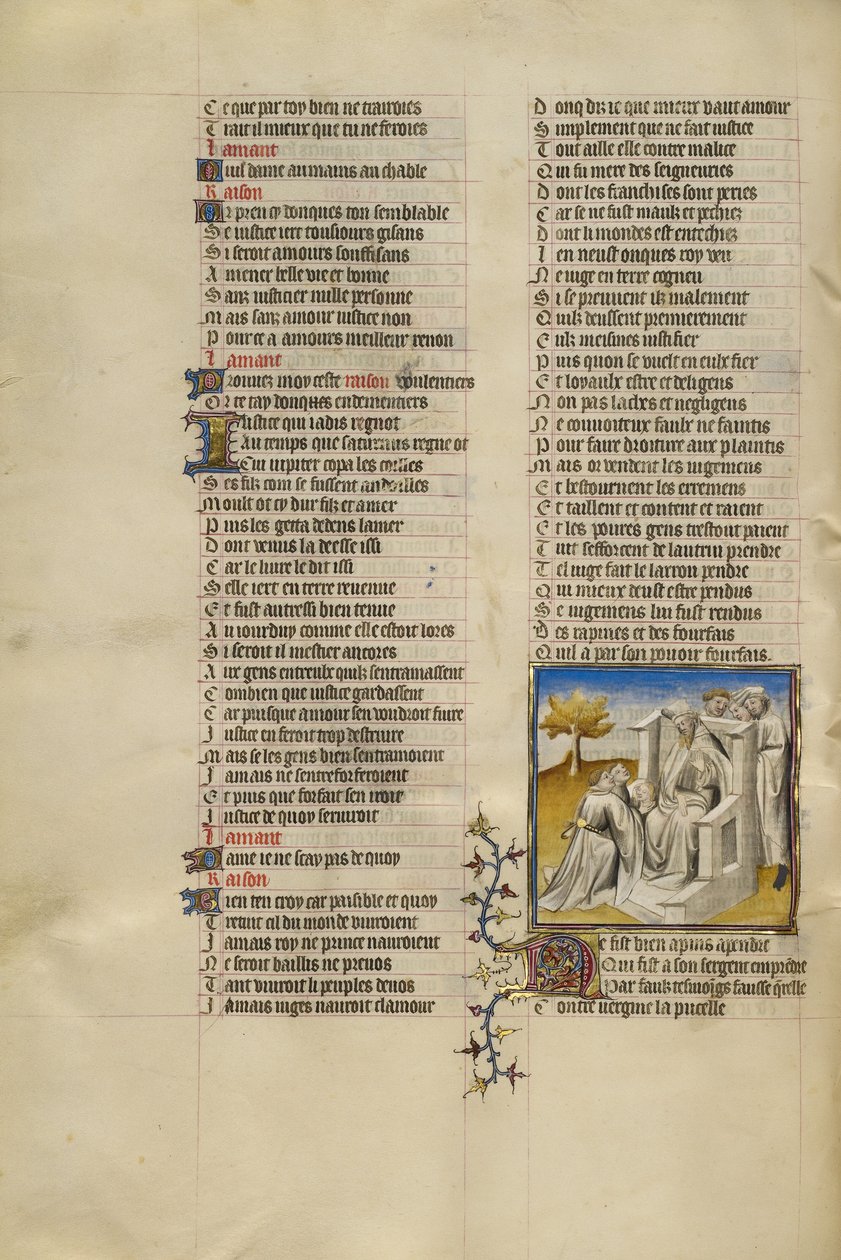 Ce que par toy bien ne trairoies
Trait il mieux que tu ne feroies
lamant
Ouil dame au mains au chable
Raison
Or pren cy donques ton semblable
Se iustice iert tousiours gisans
Si seroit amours souffisans
A mener belle vie et bonne
Sanz iusticier nulle personne
Mais sanz amour iustice non
Pour ce a amours meilleur renon
lamant
Prouuez moy ceste raison voulentiers
Or te tay donques endementiers
Iustice qui iadis regnoit
Au temps que saturnus regne ot
Cui iupiter copa les coilles
Ses filz com se fussent andoilles
Moult ot cy dur filz et amer
Puis les getta dedens la mer
Dont venus la deesse issi
Car le liure le dit issi
Selle iert en terre reuenue
Et fust autressi bien tenue
Au iourduy comme elle estoit lores
Si seroit il mestier ancores
Aux gens entreulx quilz sentramassent
Combien que iustice gardassent
Car puisque amour sen voudroit fuire
Iustice en feroit trop destruire
Mais se les gens bien sentramoient
Iamais ne sentreforferoient
Et puis que forfait sen iroit
Iustice de quoy seruiroit
lamant
Dame ie ne scay pas de quoy
Raison
Bien ten croy car paisible et quoy
Tretuit cil du monde viuroient
Iamais roy ne prince nauroient
Ne seroit baillis ne preuos
Tant viuroit li peuples deuos
Iamais iuges nauroit clamour
Donq diz ie que mieux vaut amour
Simplement que ne fait iustice
Tout aille elle contre malice
Qui fu mere des seigneuries
Dont les franchises sont peries
Car se ne fust maulz et pechiez
Dont li mondes est entechiez
Len neust onques roy veu
Ne iuge en terre cogneu
Si se preuuent ilz malement
Quilz deussent premierement
Eulz meismes iustifier
Puis quon se vuelt en eulx fier
Et loyaulx estre et deligens
Non pas lasches et negligens
Ne couuoiteux faulx ne faintis
Pour faire droiture aux plaintis
Mais or vendent les iugemens
Et bestournent les erremens
Et taillent et content et raient
Et les poures gens trestout paient
Tuit sefforcent de lautrui prendre
Tel iuge fait le larron pendre
Qui mieux deust estre pendus
Se iugemens lui fust rendus
Des rapines et des fourfais
Quil a par son pouoir fourfais.
Ne fist bien apius apendre
Qui fist a son sergent emprendre
Par faulx tesmoigs fausse querelle
Contre uergine la pucelle